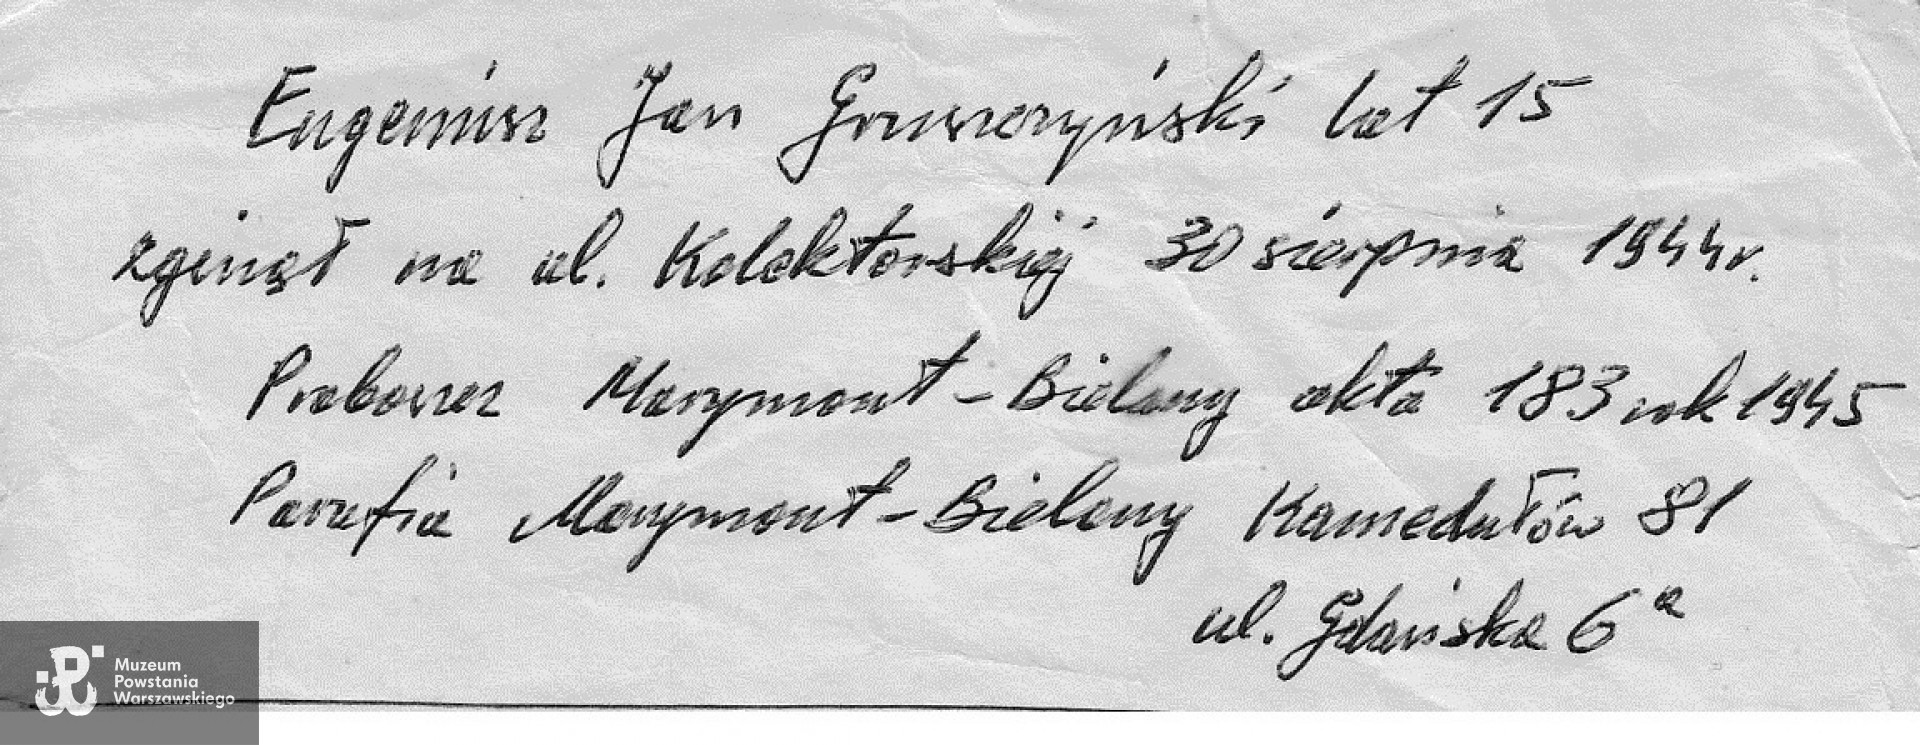 Eugeniusz Jan Gruszczyński lat 15
zginął na ul. Kolektorskiej 30 sierpnia 1944 r.
Proboszcz Marymont - Bielany akta 183 rok 1945
Parafia Marymont - Bielany Kamedułów 81
ul. Gdańska 6a
Muzeum
Powstania
Warszawskiego